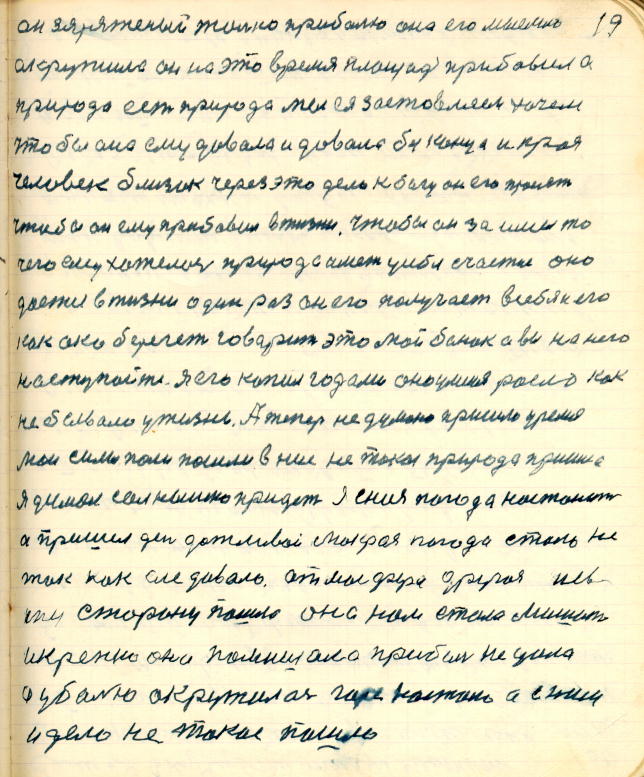 он зяряженый только прибалю она его мыемно 19
акружила он на это время площад прибавила
природа ест природа мысля заставляем хочем
чтобы она ему довала и довала бы конца и края
человек близок через это дело к богу он его просет
чтобы он ему прибавил в жизни, чтобы он за имел то
чего ему хотелось природа имет у себя счастие оно
дается в жизни один раз он его получает в себя и его
как око берегет говарит это мой банок а вы на него
наступайте. Я его копил годами оно у меня росло как
не бывало у жизнь. А тепер не думоно пришло уремя
мои силы пали пошли в ние не такая природа пришла
я думал солнышко придет Я сния погода настонит
а пришел ден дожливой мокрая погода стала не
так как следовало. атмосфера другая
ину сторону пошло она нам стала мишат
и крепко она помешала прибал не дала
а убалю акружилая горе настало а с ним
и дело не такое пошло